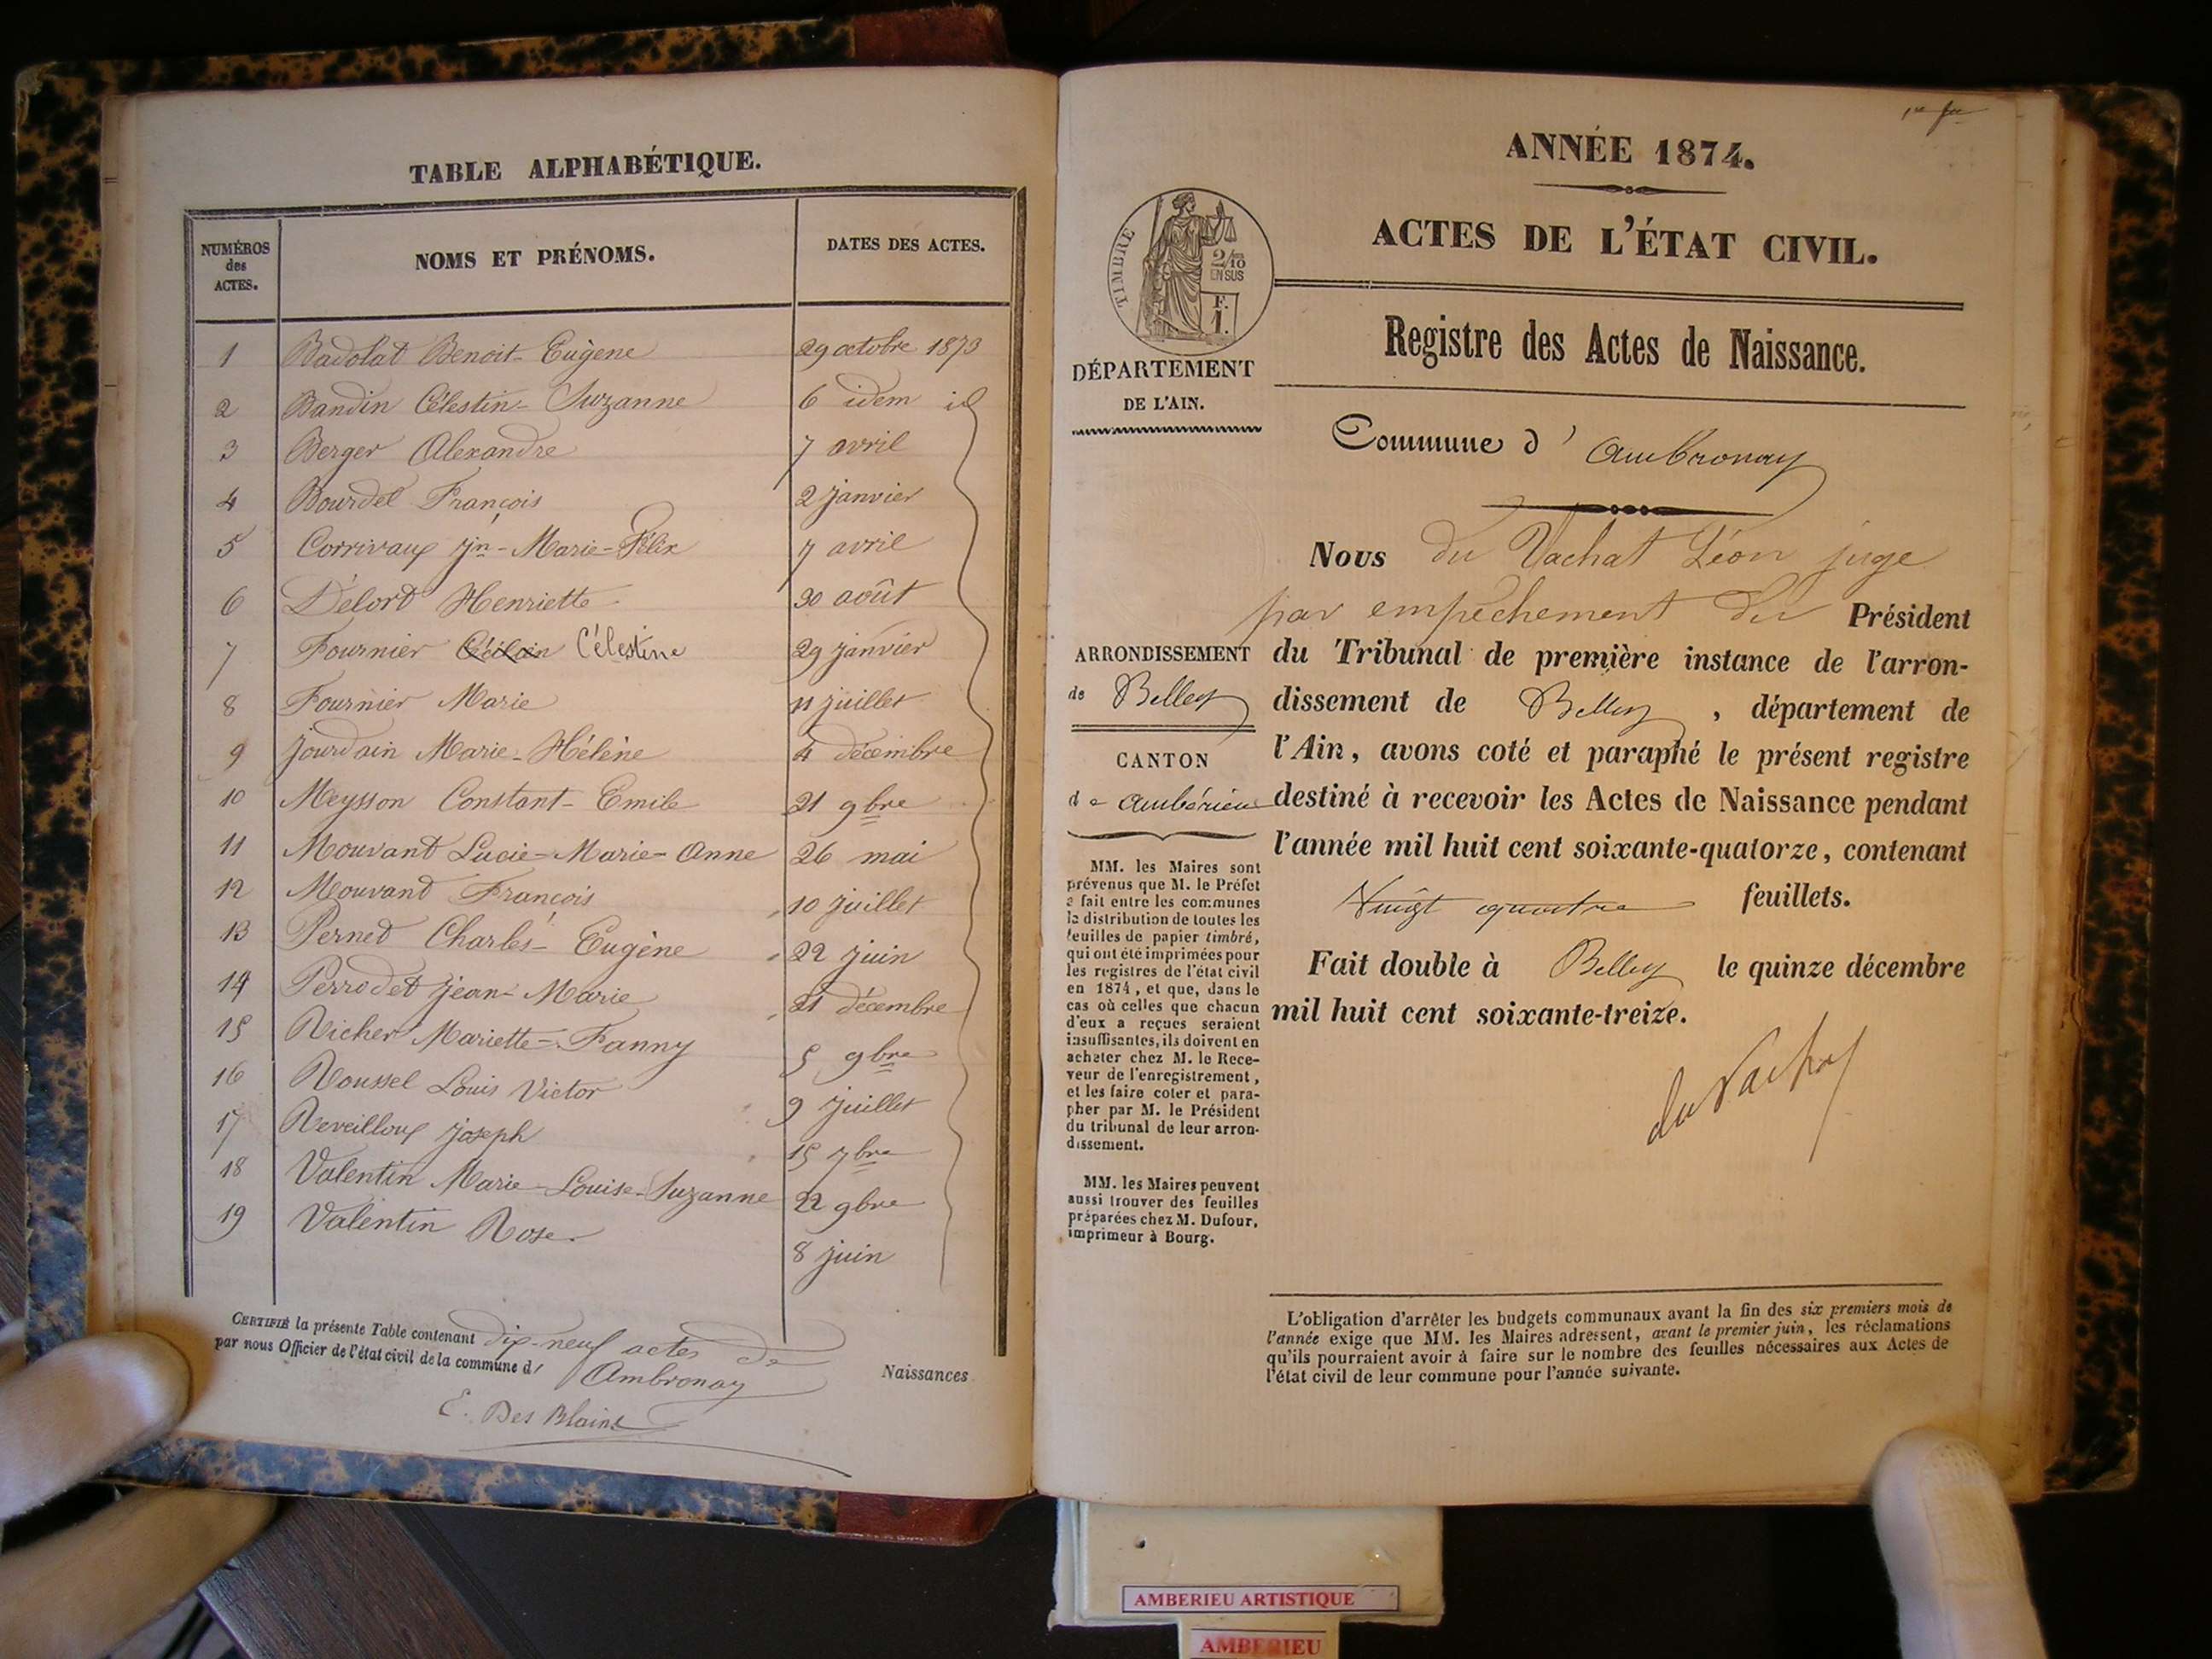 TABLE ALPHABÉTIQUE.
NUMÉROS des ACTES.
NOMS ET PRÉNOMS.
DATES DES ACTES.
1 Badolat Benoit-Eugène 29 octobre 1873
2 Bandin Célestin-Suzanne 6 idem id
3 Berger Alexandre 7 avril
4 Bourdel François 2 janvier
5 Corrivaux Jn-Marie-Félix 7 avril
6 Délord Henriette 30 août
7 Fournier Célestine 29 janvier
8 Fournier Marie 11 juillet
9 Jourdain Marie-Hélène 4 décembre
10 Meysson Constant-Emile 21 9bre
11 Mouvand Lucie-Marie-Anne 26 mai
12 Mouvand François 10 juillet
13 Pernet Charles-Eugène 22 juin
14 Perrodet Jean-Marie 21 décembre
15 Richer Mariette-Fanny 5 9bre
16 Roussel Louis Victor 9 juillet
17 Reveilloux Joseph 15 7bre
18 Valentin Marie-Louise-Suzanne 22 9bre
19 Valentin Rose 8 juin
CERTIFIÉ la présente Table contenant dix-neuf actes de Naissances
par nous Officier de l'état civil de la commune d' Ambronay
E. Des Blains
ANNÉE 1874.
ACTES DE L'ÉTAT CIVIL.
TIMBRE
2/10
EN SUS
F.
1.
DÉPARTEMENT
DE L'AIN.
Registre des Actes de Naissance.
Commune d' Ambronay
Nous du Vachat Léon juge
par empêchement du Président
du Tribunal de première instance de l'arron-
dissement de Belley, département de
l'Ain, avons coté et paraphé le présent registre
destiné à recevoir les Actes de Naissance pendant
l'année mil huit cent soixante-quatorze, contenant
Vingt quatre feuillets.
Fait double à Belley le quinze décembre
mil huit cent soixante-treize.
du Vachat
ARRONDISSEMENT
de Belley
CANTON
d'Ambérieu
MM. les Maires sont
prévenus que M. le Préfet
a fait entre les communes
la distribution de toutes les
feuilles de papier timbré,
qui ont été imprimées pour
les registres de l'état civil
en 1874, et que, dans le
cas où celles que chacun
d'eux a reçues seraient
insuffisantes, ils doivent en
acheter chez M. le Rece-
veur de l'enregistrement,
et les faire coter et para-
pher par M. le Président
du tribunal de leur arron-
dissement.
MM. les Maires peuvent
aussi trouver des feuilles
préparées chez M. Dufour,
imprimeur à Bourg.
L'obligation d'arrêter les budgets communaux avant la fin des six premiers mois de
l'année exige que MM. les Maires adressent, avant le premier juin, les réclamations
qu'ils pourraient avoir à faire sur le nombre des feuilles nécessaires aux Actes de
l'état civil de leur commune pour l'année suivante.
AMBERIEU ARTISTIQUE
AMBERIEU